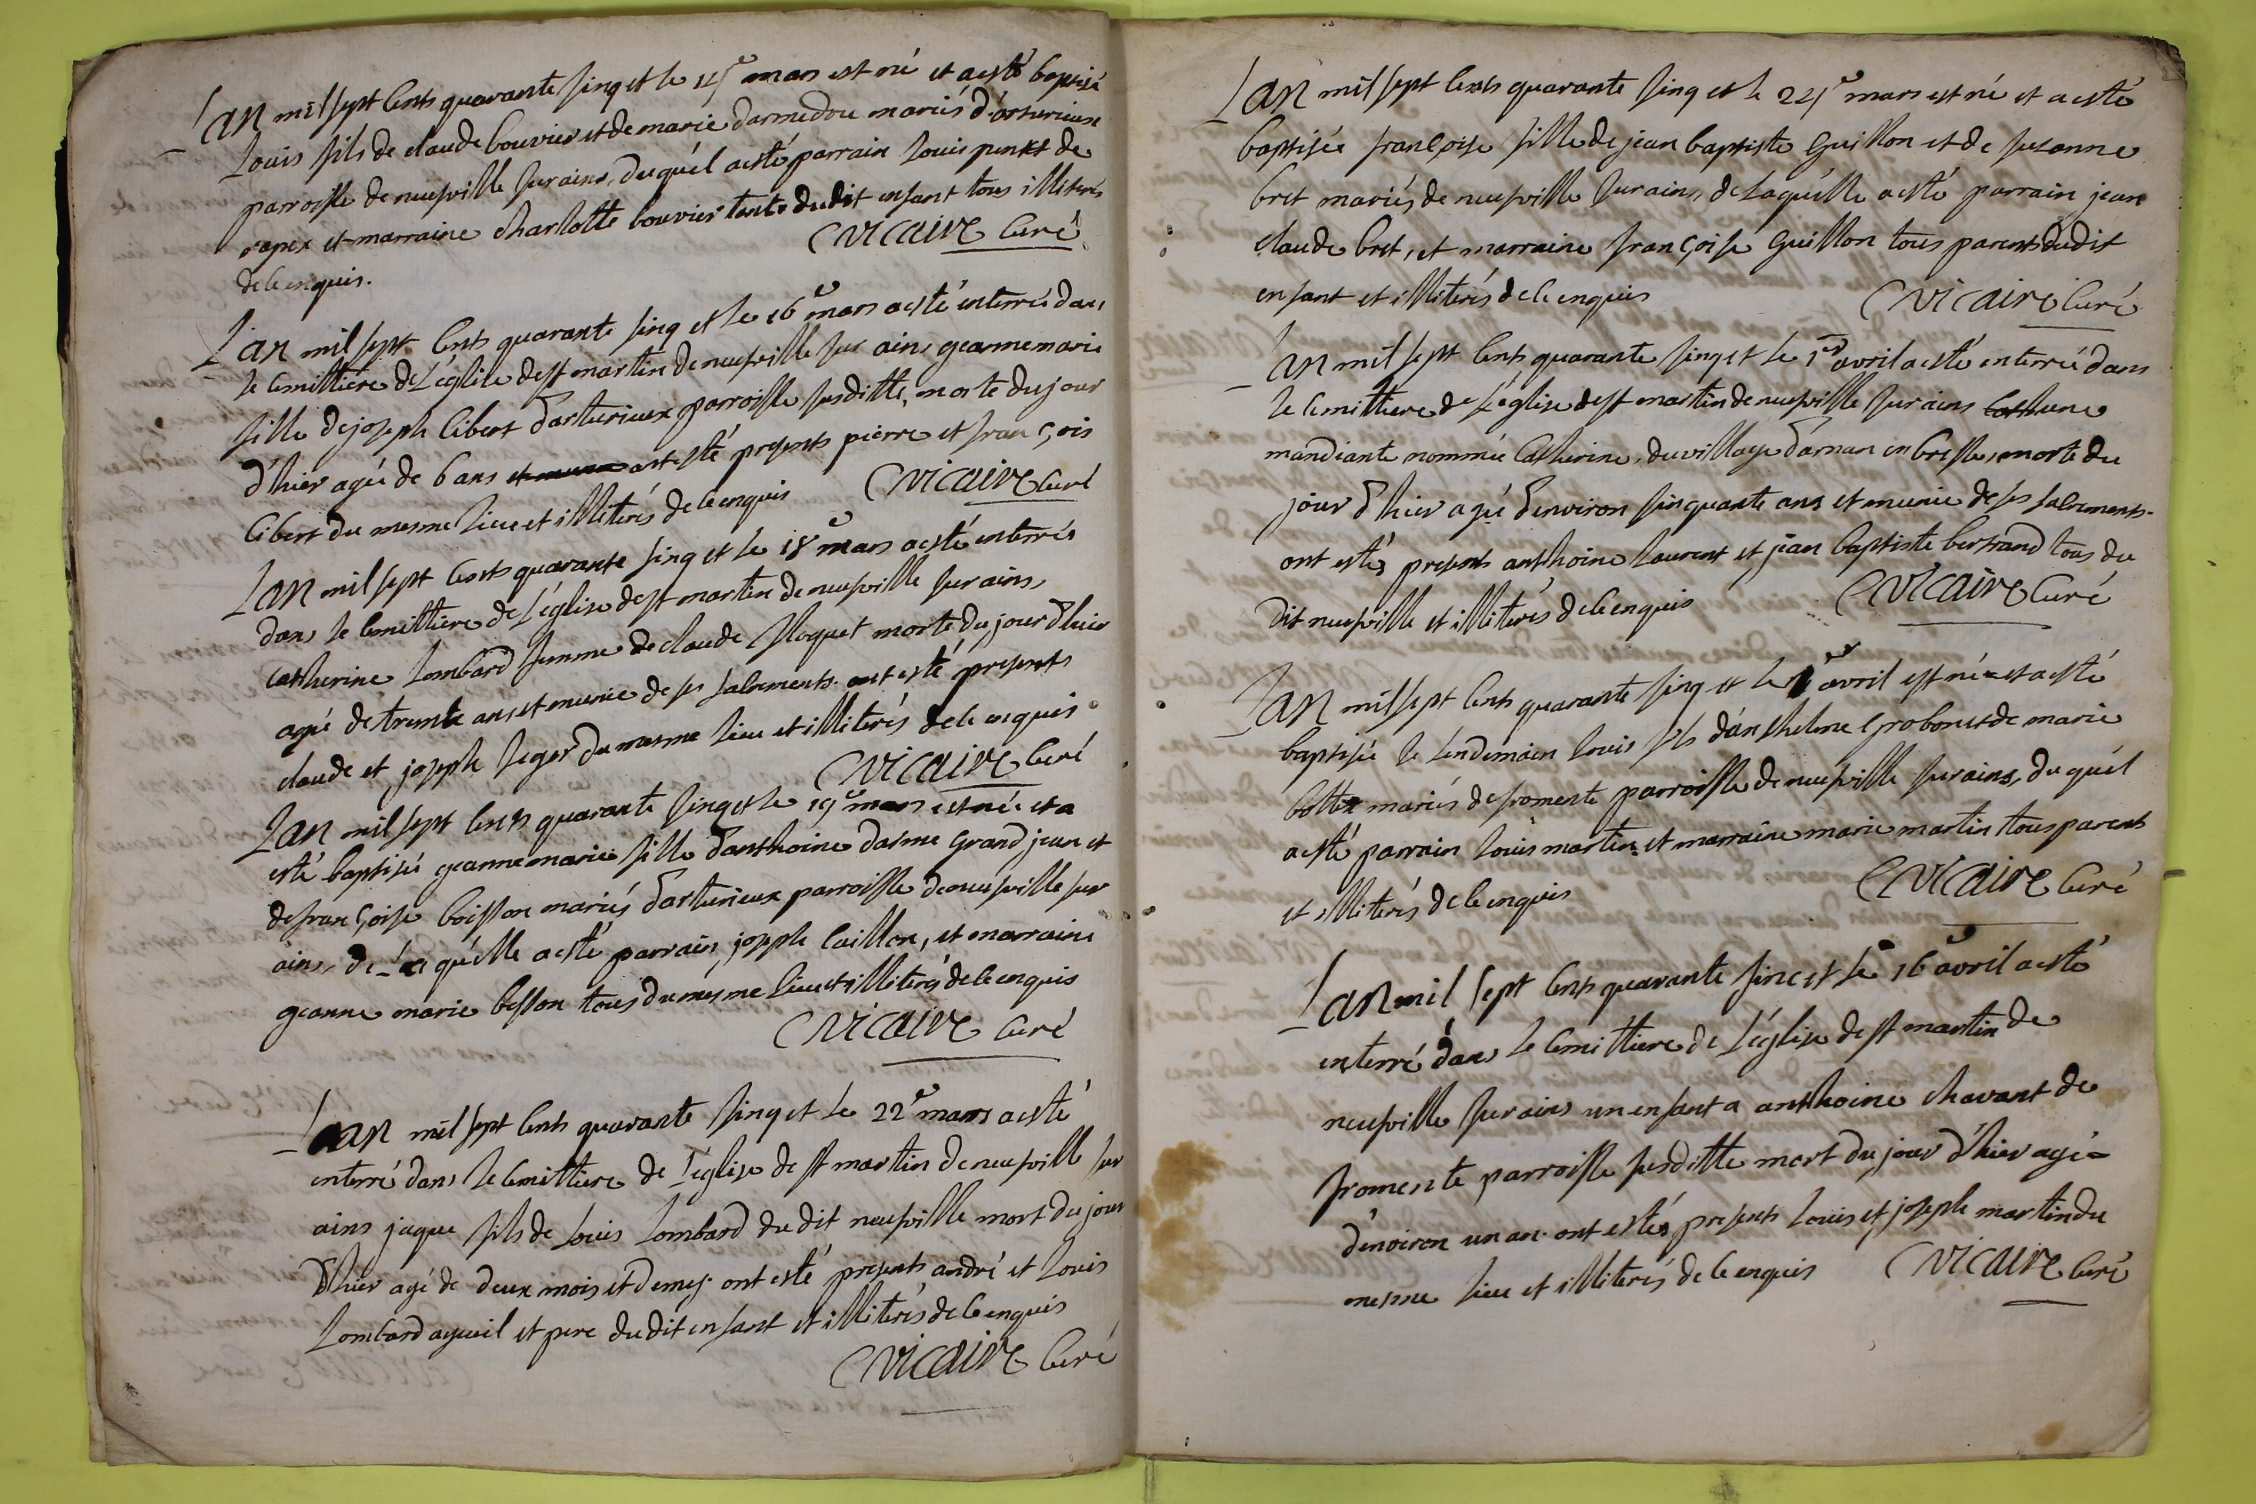 Lan mil sept cents quarante sinq et le 15e mars est né et a esté baptisé
Louis fils de claude bouvier et de marie mariés d'arturieux
parroisse de neufville sur ains, du quél a esté parrain Louis
et marraine charlotte bouvier tante du dit enfant tous illiterés
de ce enquis. Vicaire Curé
L'an mil sept cents quarante sinq et le 16e mars a esté enterrée dans
le cemittiere de L'église de st martin de neufville sur ains geanne marie
fille de joseph Cibert d'arturieux parroisse susditte, morte du jour
d'hier agée de 6 ans ont esté presents pierre et françois
Cibert du mesme lieu et illiterés de ce enquis Vicaire Curé
Lan mil sept cents quarante sinq et le 18e mars a esté enterrée
dans le cemittiere de L'église de st martin de neufville sur ains
catherine Lombard femme de claude morte du jour d'hier
agée de trente ans et munie de ses sacrements. ont esté présents
claude et joseph Leger du mesme lieu et illiterés de ce enquis
Vicaire Curé
Lan mil sept cents quarante sinq et le 19e mars est née et a
esté baptisée geanne marie fille d'anthoine darme grand jean et
de françoise boisson mariés d'arturieux parroisse de neufville sur
ains, de La quélle a esté parrain, joseph Caillon, et marraine
geanne marie besson tous du mesme lieu et illiterés de ce enquis
Vicaire Curé
Lan mil sept cents quarante sinq et le 22e mars a esté
enterré dans le cemittiere de L'église de st martin de neufville sur
ains jaque fils de Louis Lombard du dit neufville mort du jour
d'hier agé de deux mois et demej. ont esté presents andré et Louis
Lombard ayeuil et pere du dit enfant et illiterés de ce enquis
Vicaire Curé
Lan mil sept cents quarante sinq et le 25e mars est né et a esté
baptisée françoise fille de jean baptiste Guillon et de suzanne
bret mariés de neufville sur ains, de Laquélle a esté parrain jean
claude bret, et marraine françoise Guillon tous parents du dit
enfant et illiterés de ce enquis Vicaire Curé
Lan mil sept cents quarante sinq et le 1er avril a esté enterrée dans
le cemittiere de L'église de st martin de neufville sur ains une
mandiante nommée Catherine, du village d'arnan en bresse, morte du
jour d'hier agée d'environ sinquante ans et munie de ses sacrements.
ont estés presents anthoine Laurent et jean baptiste bertrand tous du
dit neufville et illiterés de ce enquis Vicaire Curé
Lan mil sept cents quarante sinq et le avril est né et a esté
baptisée le Lendemain Louis fils d'anthelme Grobon et de marie
bottex mariés de fromente parroisse de neufville sur ains, du quél
a esté parrain Louis martin et marraine marie martin tous parents
et illiterés de ce enquis Vicaire Curé
Lan mil sept cents quarante sinc et le 16e avril a esté
enterré dans le cemittiere de L'église de st martin de
neufville sur ains un enfant a anthoine chavant de
fromente parroisse susditte mort du jour d'hier agé
d'envoiron un an. ont estés presents Louis et joseph martin du
mesme lieu et illiterés de ce enquis Vicaire Curé